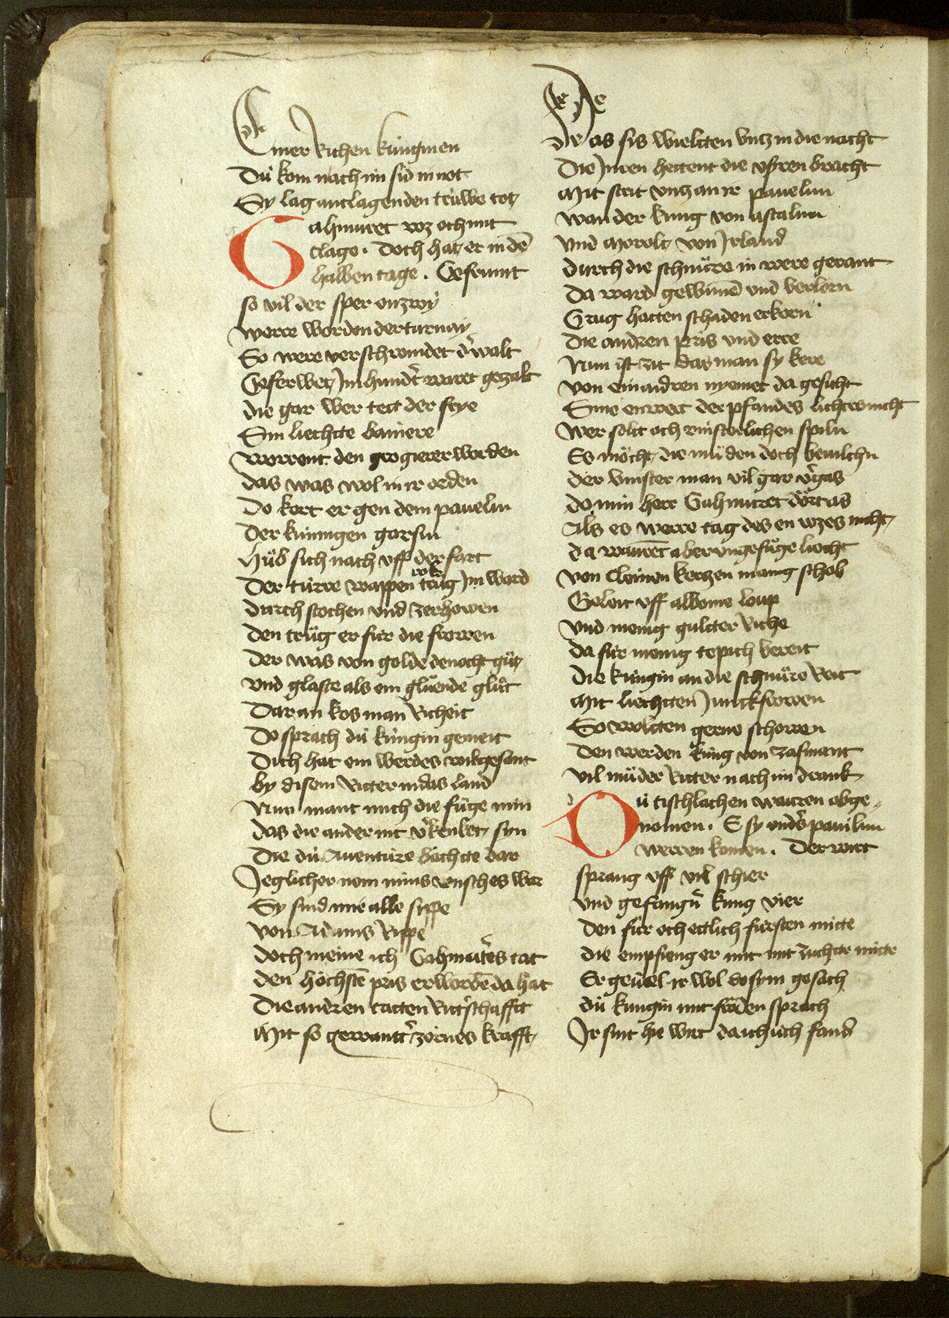 Einer Richen kúnginen
Dú kom nach im sid in not
Sy lag an clagenden trúwe tot
Gahmuret waz och mit
clage. Doch hat er in dē
halben tage. Gefrumt
so vil der sper enzwy
werre worden der turnay
So were verschwindet der walt
Geferwet Im hundert waret gezalt
die gar wer tett der feye
Sin liechtte baniere
warent den grogierer worden
das was wol in ir orden
Do kort er gen dem pauelun
Der kúnngen garsun
Húb sich nach vff der fart
Der túrre wappen rok trúg Im ward
durch stochen vnd zerhowen
den trúg er fúr die frowen
der was von golde denocht gút
vnd glaste als ein glúende glút
Dar an kos man Richeit
Do sprach dú kúngin gemeit
Dich hat ein werdes wib gesant
by disem Ritter in das land
Nun mant mich die fúge min
das die ander nit verkrenket syn
Die dú Auentúre bachtte dar
Jeglicher nem mins wnsches war
Sy sind mir alle sippe
von Adams Rippe
doch meine ich Gahmuretes tat
den hóchstē pris erworbē da hat
Die andren tatten Ritterschafft
Mit so gewantter zornes krafft
Das sis wieltten vncz in die nacht
Die Inren hettent die vssren bracht
Mit strit vncz an ir pauelun
wan der kúng von astalun
vnd Morolt von Irland
durch die schnúre in were gerant
Da ward gewunē vnd verlorn
Gnug hatten schaden erkorn
Die andren pris vnd erre
Nun ist zit daz man sy kere
von ein andren nyemet da gesicht
Sine enwert der pfandes lichtes nicht
wer solt och vinsterlichen spiln
Es mócht die múden doch beuilchn
der vinster man vil gar vergas
do min herr Gahmuret dort as
Als es werre tag des en wzes nicht
da waurēt aber vngefúge liecht
von cleinen kerczen mang schob
Geleit vff alböme loup
vnd menig gultter Riche
da fúr menig tepich bereit
Die kúngin an die schnúre Reit
Mit liechtten Junckfrowen
So woltten gerne schowen
Den werden kúng von zasmant
vil múder Ritter nach im drank
Dú tischlachen waúren abge
nomen. E sy vnders pauilun
werren komen. Der wirt
sprang vff vil schier
vnd gefangner kúng vier
den fúr och ettlich fúrsten mitte
die empfieng er mit mit zuchtte mitte
Er geuiel ir wol do sy in gesach
dú kúngin mit fröden sprach
Ir sint hie wirt da ich úch fand